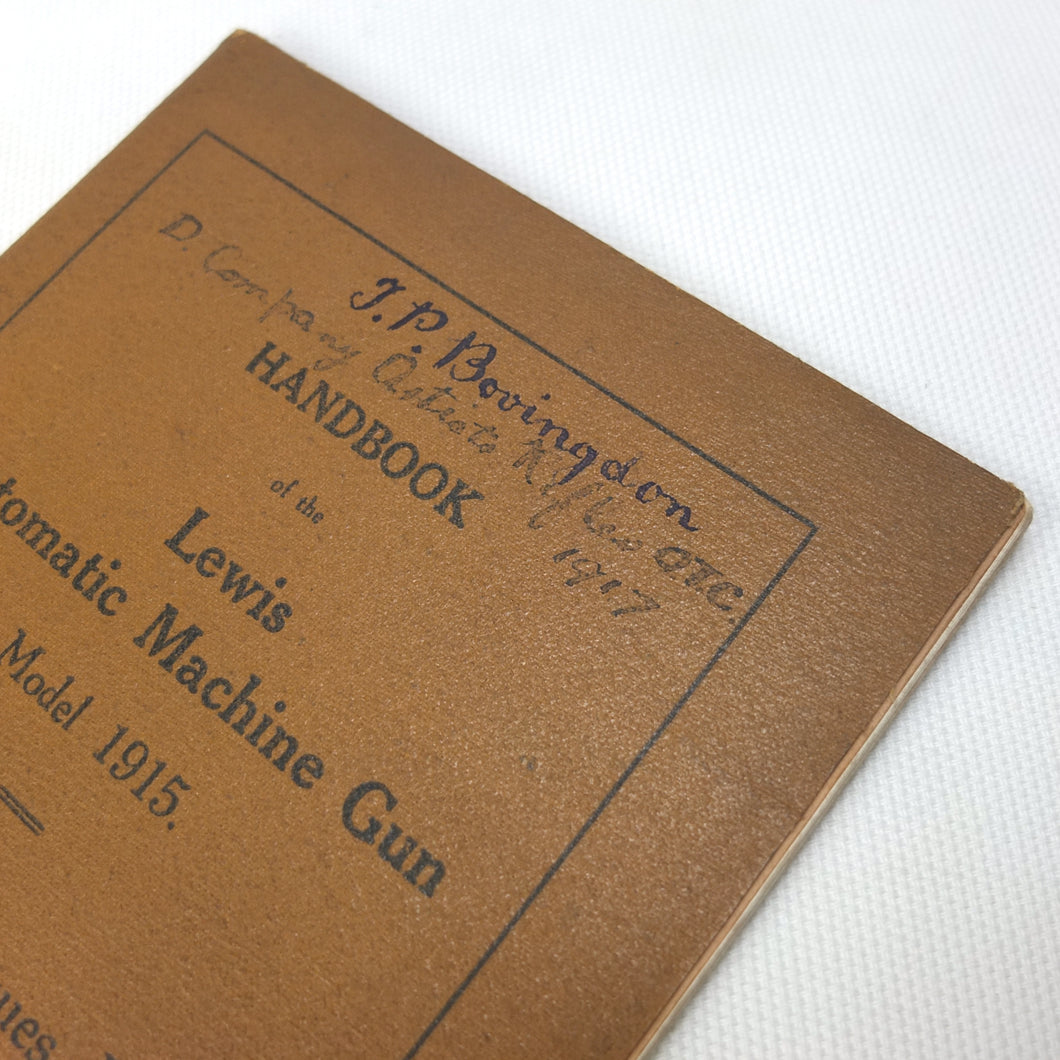 J. P. Bovingdon
D. Company Artists Rifles OTC.
1917
HANDBOOK
of the
Lewis
tomatic Machine Gun
Model 1915.